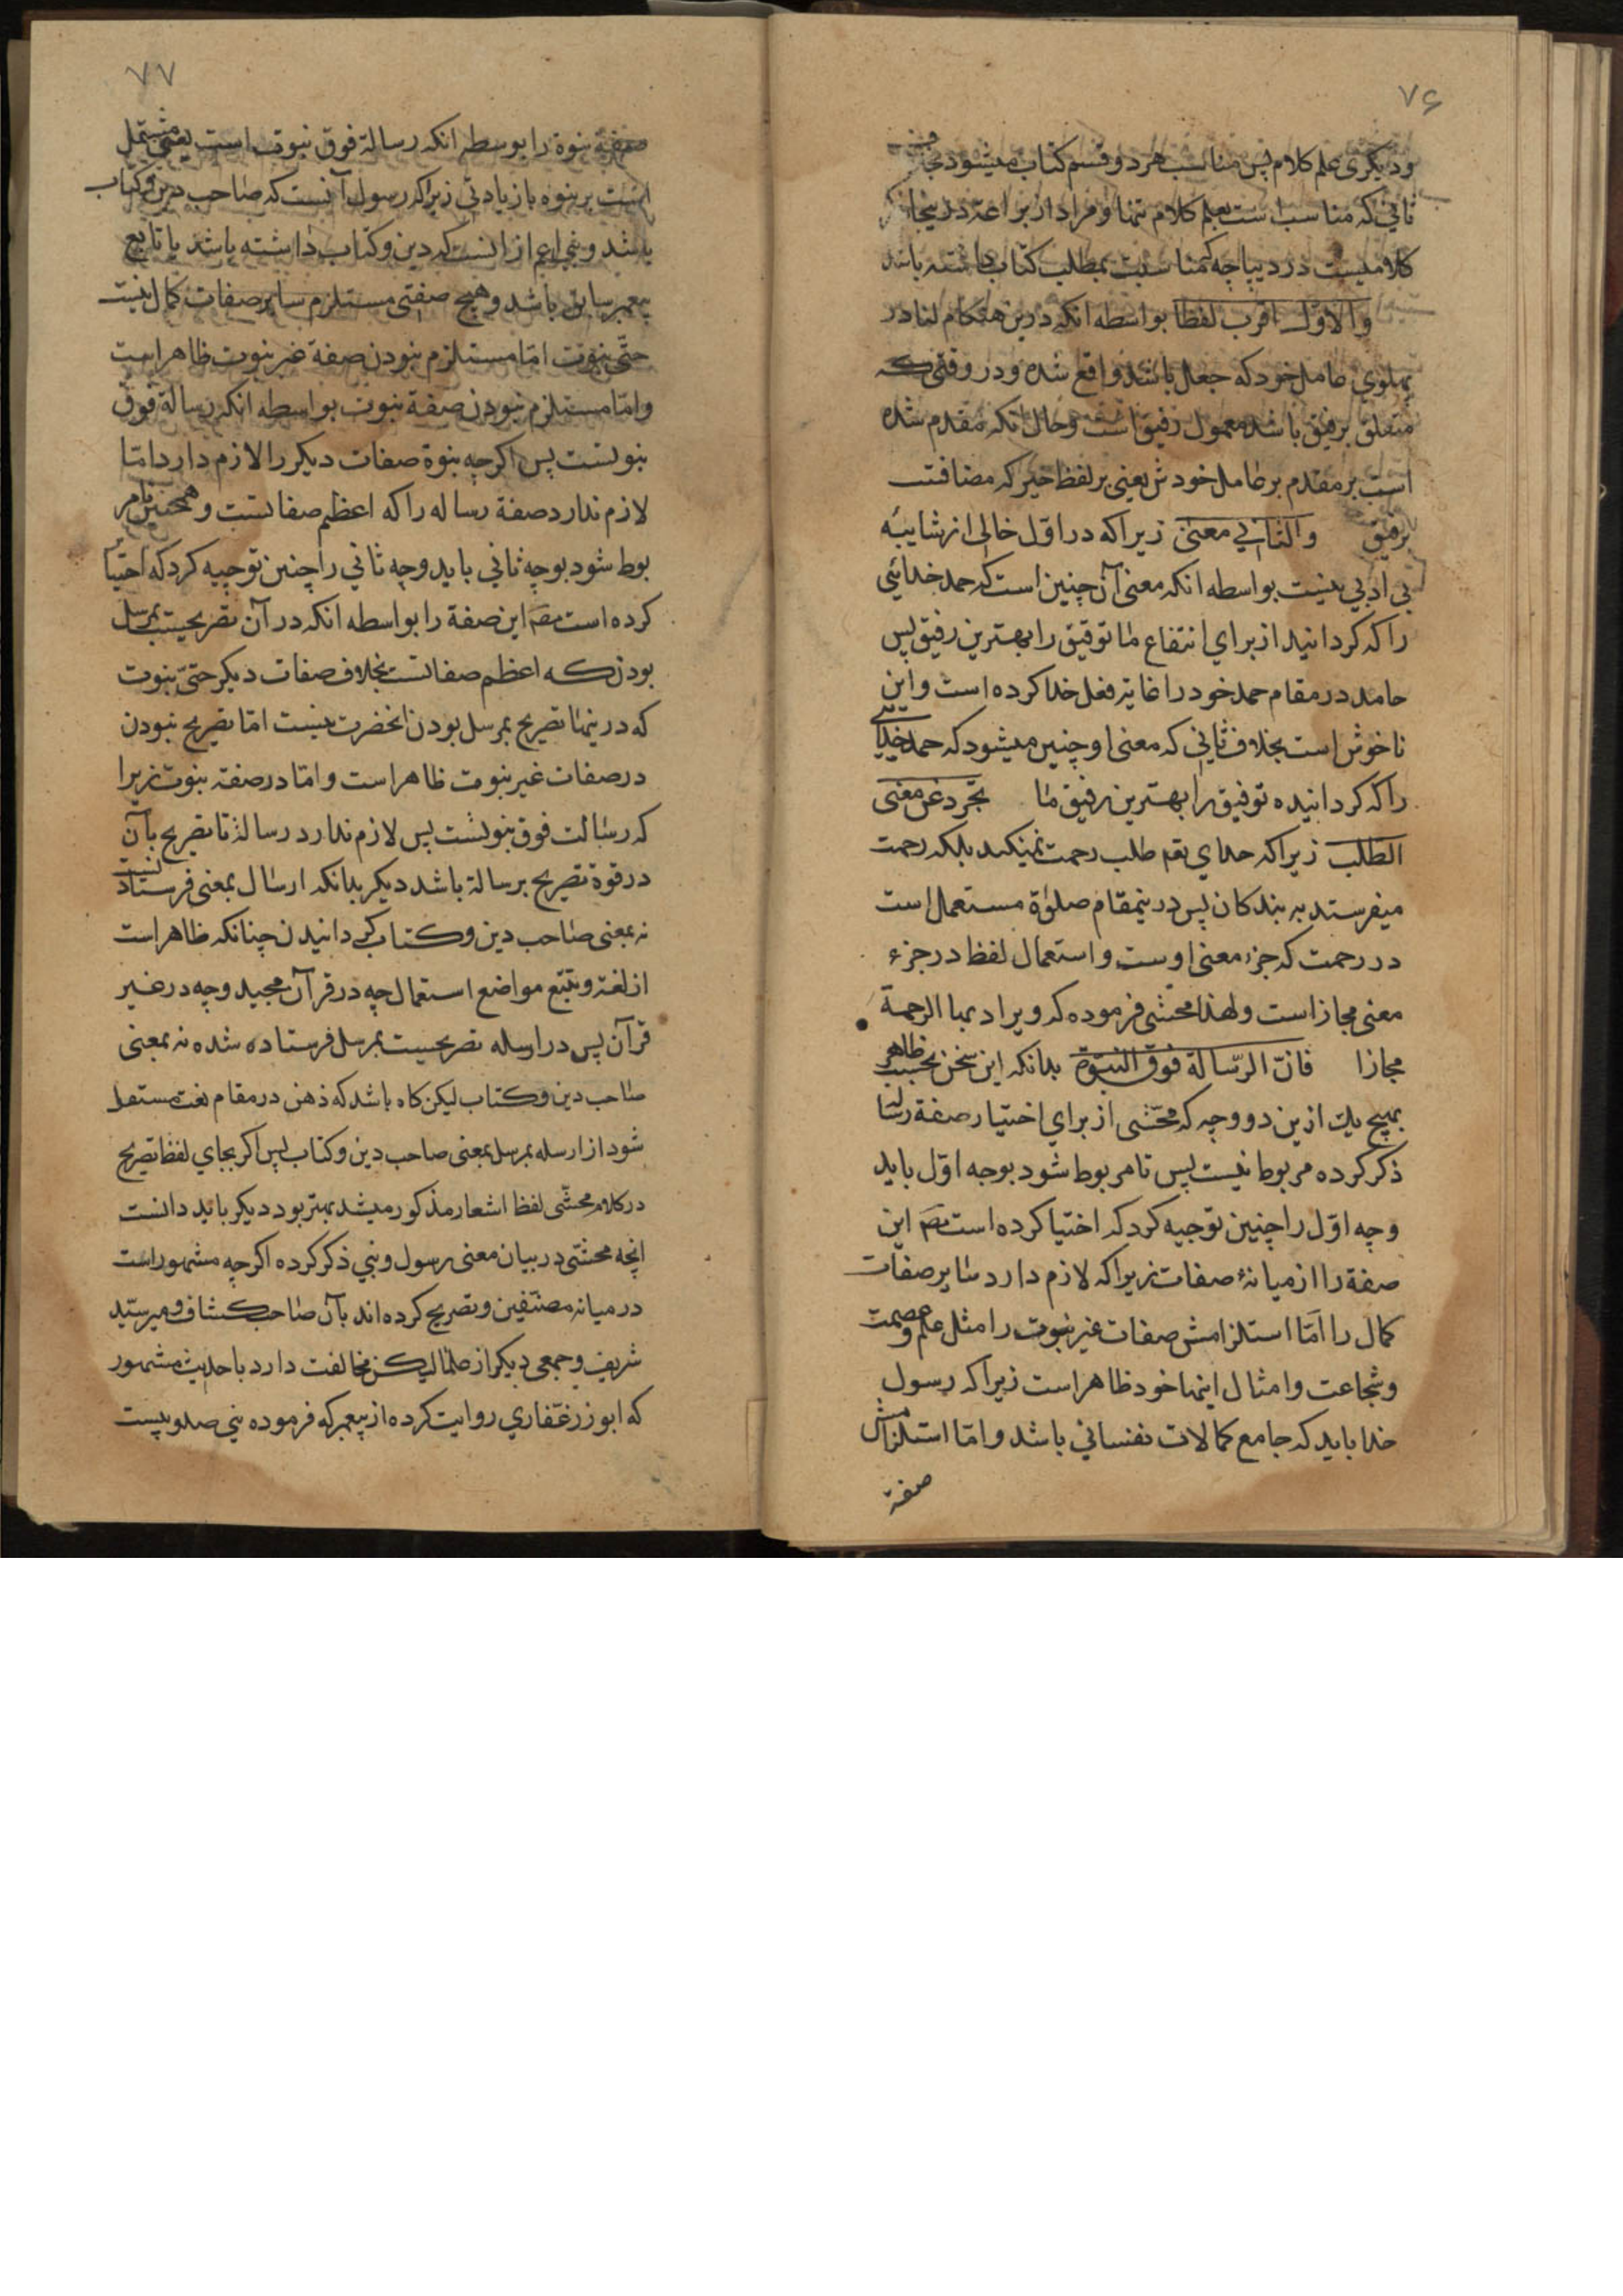 ۷۶
ودیکری علم کلام پس مناسب هر دو قسم کتاب میشود بخلاف
ثانی که مناسب است بعلم کلام تنها و مراد از براعة درینجا
کلامیست در دیباچه که مناسبت بمطلب کتاب داشته باشد
والاوّل اقرب لفظا بواسطه انکه درین هنکام لنا در
پهلوی عامل خود که جعل باشد واقع شده و در وقتی که
متعلق برفیق باشد معمول رفیق است وحال انکه مقدم شده
است بر مقدم بر عامل خودش یعنی بر لفظ خیر که مضافست
برفیق والثانی معنی زیرا که در اوّل خالی از شایبه
بی ادبی نیست بواسطه انکه معنی آن چنین است که حمد خدائی
را که کردانید از برای انتفاع ما توفیق را بهترین رفیق پس
حامد در مقام حمد خود را غایة فعل خدا کرده است واین
ناخوش است بخلاف ثانی که معنی او چنین میشود که حمد خدایی
را که کردانیده توفیق را بهترین رفیق ما بجّرد عن معنی
الطلب زیرا که خدای تعم طلب رحمت نمیکند بلکه رحمت
میفرستد به بندکان پس درینمقام صلوٰة مستعمل است
در رحمت که جزء معنی اوست واستعمال لفظ در جزء
معنی مجاز است ولهذا محشی فرموده که ویراد بها الرحمة
مجازا فانّ الرّسالة فوق النبّوة بدانکه این سخن بحسب ظاهر
بهیچ یك ازین دو وجه که محّشی از برای اختیار صفة رسالة
ذکر کرده مربوط نیست پس تا مربوط شود بوجه اوّل باید
وجه اوّل را چنین توجیه کرد که اختیا کرده است مصَ این
صفة را از میانهٔ صفات زیرا که لازم دارد سایر صفات
کمال را امّا استلزامش صفات غیر نبوت را مثل علم وعصمت
وشجاعت وامثال اینها خود ظاهر است زیرا که رسول
خدا باید که جامع کمالات نفسانی باشد وامّا استلزامش
صفة
۷۷
صفة نبوة را بوسطه انکه رسالة فوق نبوت است یعنی مشتمل
است بر نبوه بازیادتی زیرا که رسول آنست که صاحب دین وکتاب
باشد ونبی اعم از انست که دین وکتاب داشته باشد یا تابع
پیغمبر سابق باشد وهیچ صفتی مستلزم سایر صفات کمال نیست
حتّی نبوت امّا مستلزم نبودن صفة غیر نبوت ظاهر است
وامّا مستلزم نبودن صفة نبوت بواسطه انکه رسالة فوق
نبوتست پس اکرچه نبوة صفات دیکر را لازم دارد امّا
لازم ندارد صفة رساله را که اعظم صفاتست وهمچنین تا مر
بوط شود بوجه ثانی باید وجه ثانی را چنین توجیه کرد که اختیا
کرده است مصَ این صفة را بواسطه انکه در آن تصریحیست بمرسل
بودن که اعظم صفاتست بخلاف صفات دیکر حتّی نبوت
که درینها تصریح بمرسل بودن انحضرت نیست امّا تصریح نبودن
در صفات غیر نبوت ظاهر است وامّا در صفة نبوت زیرا
که رسالت فوق نبوتست پس لازم ندارد رسالة تا تصریح بآن
در قوة تصریح برسالة باشد دیکر بدانکه ارسال بمعنی فرستادنست
نه بمعنی صاحب دین وکتاب کردانیدن چنانکه ظاهر است
از لغة وتتبّع مواضع استعمال چه در قرآن مجید وچه در غیر
قرآن پس در ارسله تصریحیست بمرسل فرستاده شده نه بمعنی
صاحب دین وکتاب لیکن کاه باشد که ذهن در مقام نعت مستقل
شود از ارسله بمرسل بمعنی صاحب دین وکتاب پس اکر بجای لفظ تصریح
در کلام محشّی لفظ اشعار مذکور میشد بهتر بود دیکر باید دانست
انچه محشّی در بیان معنی رسول ونبی ذکر کرده اکرچه مشهور است
در میانه مصنّفین وتصریح کرده اند بآن صاحب کشّاف ومیرسیّد
شریف وجمعی دیکر از علما لیکن مخالفت دارد با حدیث مشهور
که ابو زر غفّاری روایت کرده از پیغمبر که فرموده نبی صد وبیست